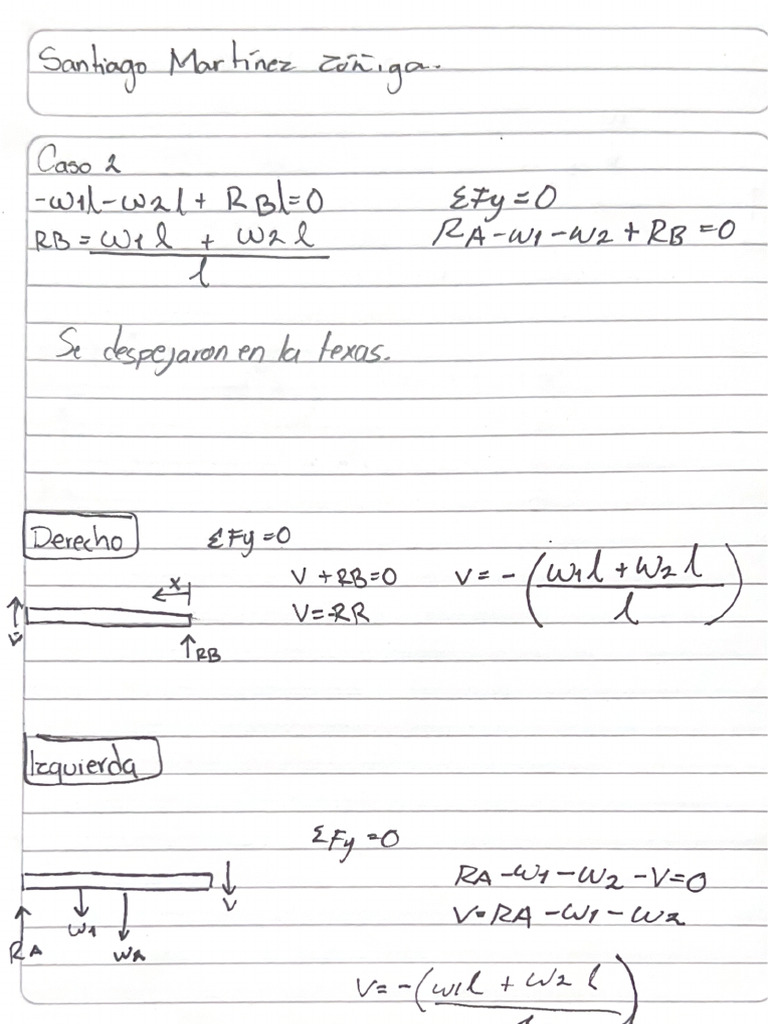 Santiago Martínez Zúñiga.
Caso 2
-w1l-w2l+ RBl=0
ΣFy=0
RB = w1 l + w2 l
l
RA-w1-w2+RB=0
Se despejaron en la texas.
Derecho
ΣFy=0
V+RB=0
V=-RR
V= - (w1l + w2 l)
l
x
V
RB
Izquierda
ΣFy=0
RA-w1-w2-V=0
V=RA-w1-w2
V
w1
RA
w2
V= -(w1l + w2 l)